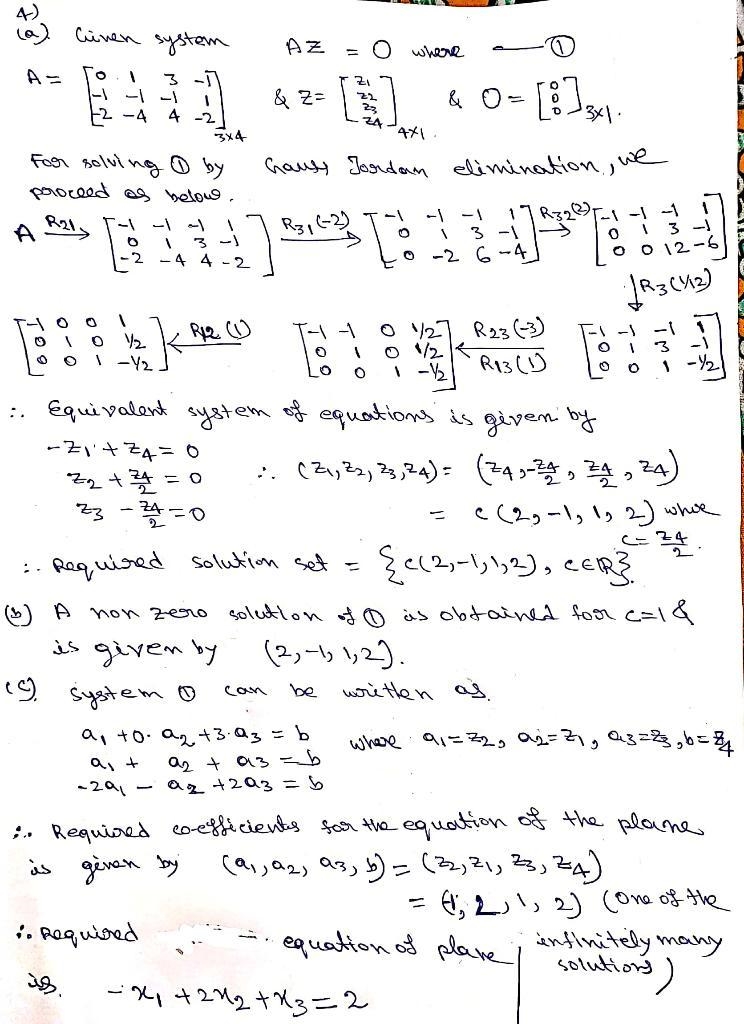 4)
(a) Given system AZ = O where — ①
A = [0 1 3 -1; -1 -1 -1 1; -2 -4 4 -2]3x4 & Z = [z1; z2; z3; z4]4x1. & O = [0; 0; 0]3x1.
For solving ① by Gauss Jordan elimination, we
proceed as below.
A R21→ [-1 -1 -1 1; 0 1 3 -1; -2 -4 4 -2] R31(-2)→ [-1 -1 -1 1; 0 1 3 -1; 0 -2 6 -4] R32(2)→ [-1 -1 -1 1; 0 1 3 -1; 0 0 12 -6]
↓R3(1/12)
[-1 0 0 1; 0 1 0 1/2; 0 0 1 -1/2] ←R12(1) [-1 -1 0 1/2; 0 1 0 1/2; 0 0 1 -1/2] ←R23(-3) R13(1) [-1 -1 -1 1; 0 1 3 -1; 0 0 1 -1/2]
∴ Equivalent system of equations is given by
-z1 + z4 = 0
z2 + z4/2 = 0 ∴ (z1, z2, z3, z4) = (z4, -z4/2, z4/2, z4)
z3 - z4/2 = 0 = c(2, -1, 1, 2) where
c = z4/2.
∴ Required solution set = {c(2,-1,1,2), c∈R}
(b) A non zero solution of ① is obtained for c=1 &
is given by (2,-1,1,2).
(c) system ① can be written as.
a1 + 0. a2 + 3. a3 = b
a1 + a2 + a3 = b where a1 = z2, a2 = z1, a3 = z3, b = z4
-2a1 - a2 + 2a3 = b
∴ Required co-efficients for the equation of the plane
is given by (a1, a2, a3, b) = (z2, z1, z3, z4)
= (-1, 2, 1, 2) (one of the
infinitely many
solutions)
∴ Required equation of plane
is. -x1 + 2x2 + x3 = 2